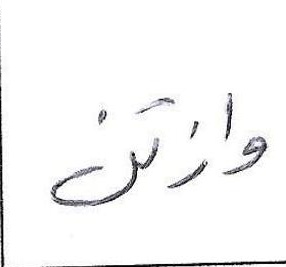 وازتن